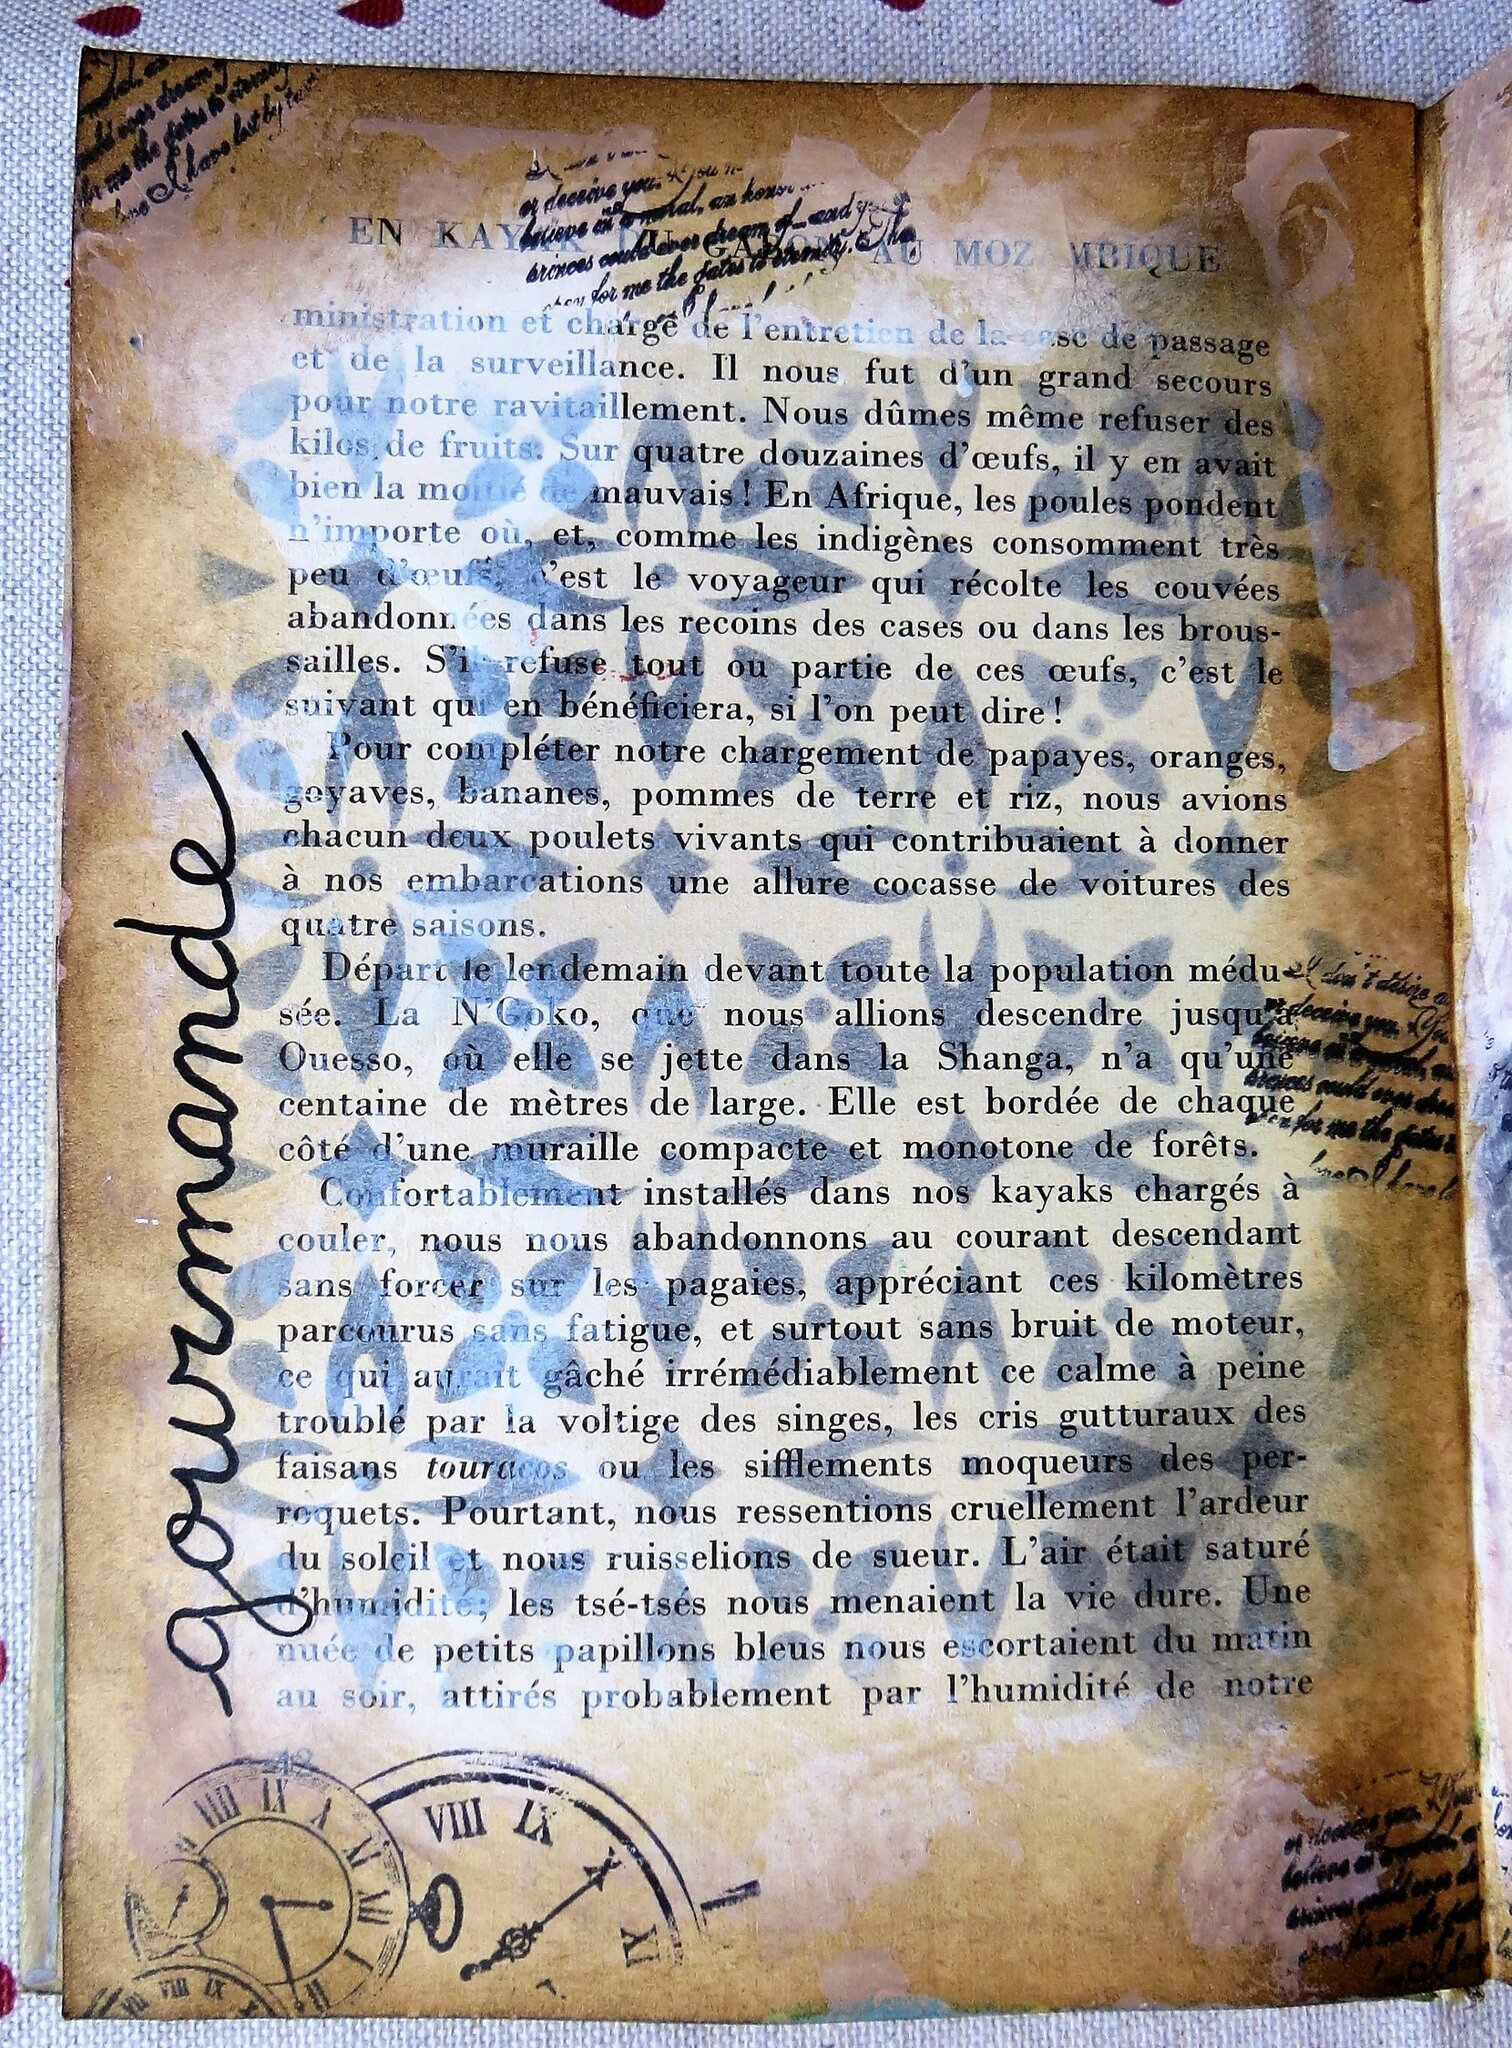 EN KAYAK DU GABON AU MOZAMBIQUE
ministration et chargé de l'entretien de la case de passage
et de la surveillance. Il nous fut d'un grand secours
pour notre ravitaillement. Nous dûmes même refuser des
kilos de fruits. Sur quatre douzaines d'œufs, il y en avait
bien la moitié de mauvais ! En Afrique, les poules pondent
n'importe où, et, comme les indigènes consomment très
peu d'œufs, c'est le voyageur qui récolte les couvées
abandonnées dans les recoins des cases ou dans les brous-
sailles. S'il refuse tout ou partie de ces œufs, c'est le
suivant qui en bénéficiera, si l'on peut dire !
Pour compléter notre chargement de papayes, oranges,
goyaves, bananes, pommes de terre et riz, nous avions
chacun deux poulets vivants qui contribuaient à donner
à nos embarcations une allure cocasse de voitures des
quatre saisons.
Départ le lendemain devant toute la population médu-
sée. La N'Goko, que nous allions descendre jusqu'à
Ouesso, où elle se jette dans la Shanga, n'a qu'une
centaine de mètres de large. Elle est bordée de chaque
côté d'une muraille compacte et monotone de forêts.
Confortablement installés dans nos kayaks chargés à
couler, nous nous abandonnons au courant descendant
sans forcer sur les pagaies, appréciant ces kilomètres
parcourus sans fatigue, et surtout sans bruit de moteur,
ce qui aurait gâché irrémédiablement ce calme à peine
troublé par la voltige des singes, les cris gutturaux des
faisans touracos ou les sifflements moqueurs des per-
roquets. Pourtant, nous ressentions cruellement l'ardeur
du soleil et nous ruisselions de sueur. L'air était saturé
d'humidité; les tsé-tsés nous menaient la vie dure. Une
nuée de petits papillons bleus nous escortaient du matin
au soir, attirés probablement par l'humidité de notre
12
gourmande
or deceive you. You
believe in a moral, an honor
princes could ever dream of—and you
open for me the gates to eternity. The
could ever dream of
for me the gates to eternity
I have lost by
I don't desire
or deceive you. You
believe in a moral, an
princes could ever dream
open for me the gates
I have
or deceive you. You
believe in a moral
princes could ever
open for me the gates
VIII IX X XI XII I II
VIII IX X XI
VIII IX